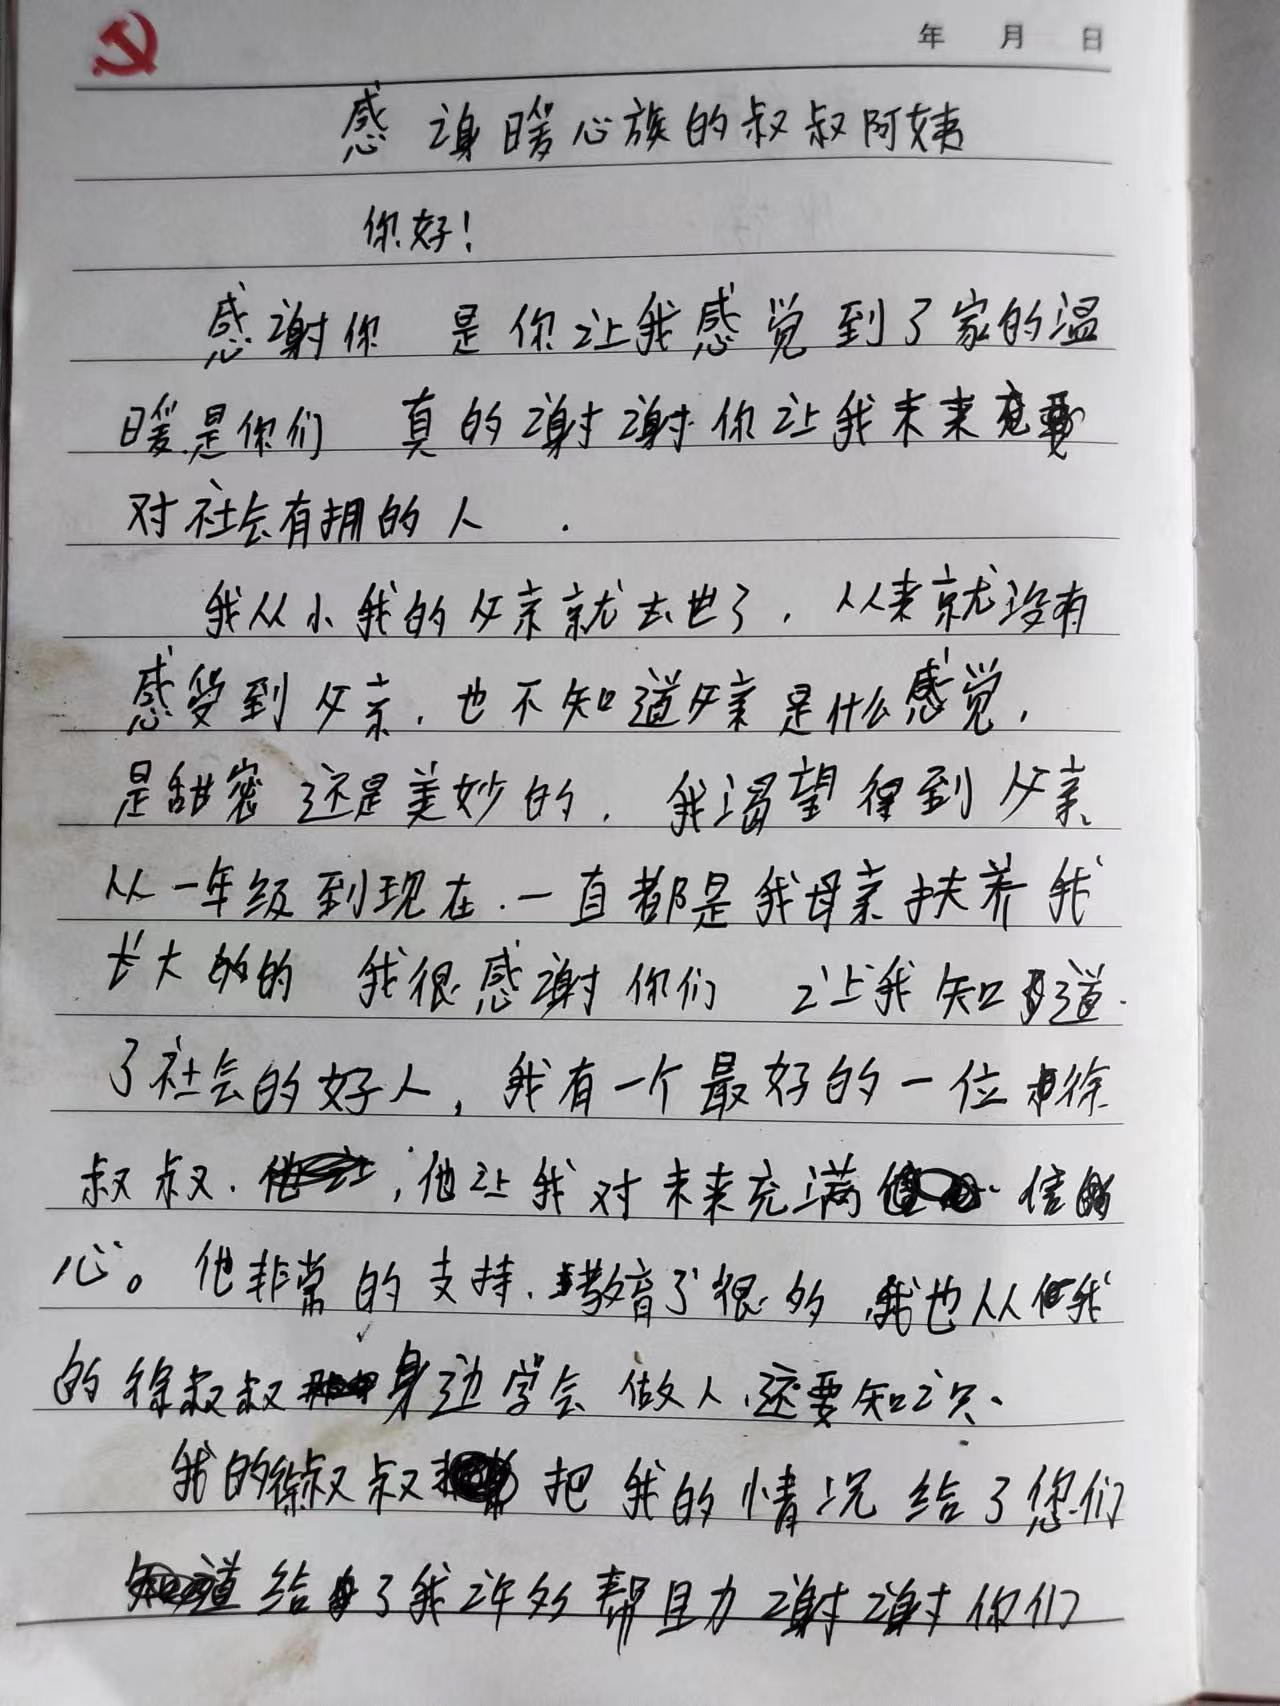 年 月 日
感谢暖心族的叔叔阿姨
你好！
感谢你 是你让我感觉到了家的温
暖是你们 真的谢谢你让我未来
对社会有拥的人 .
我从小我的父亲就去世了，从来就没有
感受到父亲，也不知道父亲是什么感觉，
是甜密还是美妙的．我渴望得到父亲
从一年级到现在．一直都是我母亲扶养我
长大的 我很感谢你们 让我知道
了社会的好人，我有一个最好的一位徐
叔叔．，他让我对未来充满信
心。他非常的支持．教育了很多，我也从我
的徐叔叔身边学会做人、还要知识、
我的徐叔叔把我的情况给了您们
给了我许多帮助谢谢你们